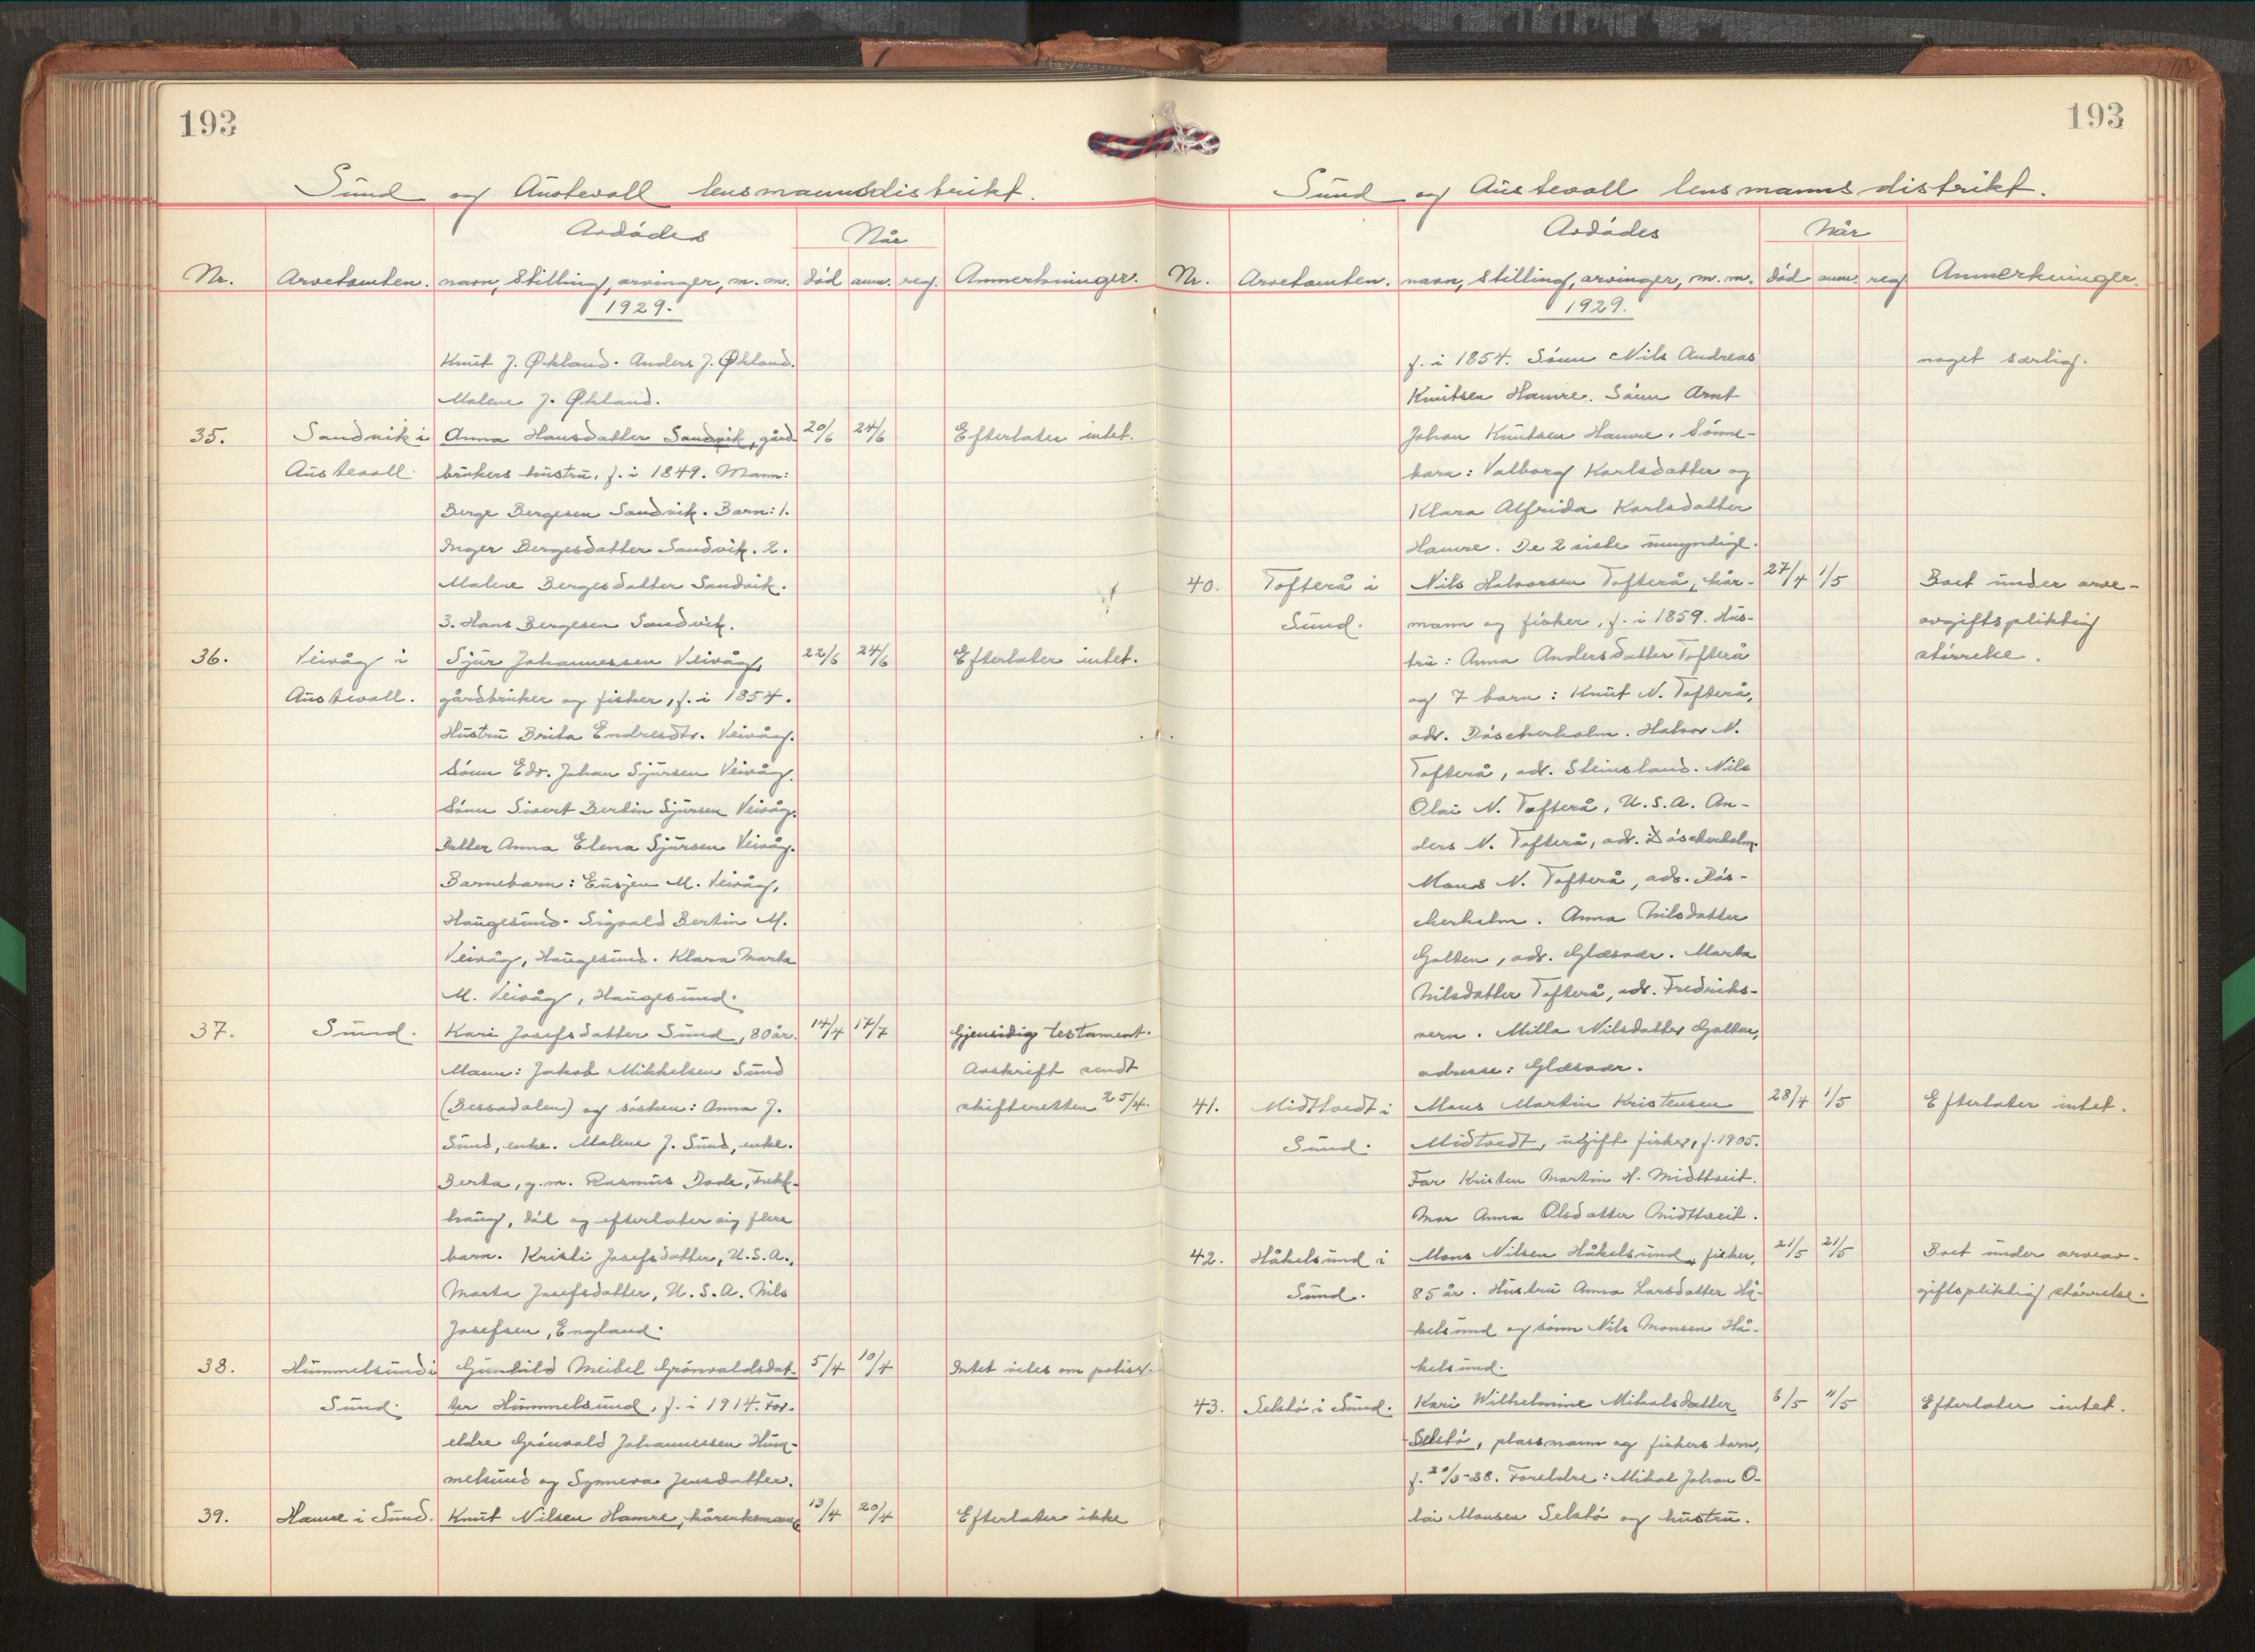 193
Sund og Austevoll lensmannsdistrikt.
Avdødes
Når
Nr. Arvetomten. navn, stilling, arvinger, m. m. død anm. reg. Anmerkninger.
1929.
Knut J. Økland. Anders J. Økland.
Malene J. Økland.
35. Sandvik i Anna Hansdatter Sandvik, gård- 20/6 24/6 Efterlater intet.
Austevoll. brukers hustru, f. i 1849. Mann:
Berge Bergesen Sandvik. Barn: 1.
Inger Bergesdatter Sandvik. 2.
Malene Bergesdatter Sandvik.
3. Hans Bergesen Sandvik.
36. Veivåg i Sjur Johannessen Veivåg, 22/6 24/6 Efterlater intet.
Austevoll. gårdbruker og fisker, f. i 1854.
Hustru Brita Endresdtr. Veivåg.
Sønn Edv. Johan Sjursen Veivåg.
Sønn Sivert Bertin Sjursen Veivåg.
Datter Anna Elena Sjursen Veivåg.
Barnebarn: Eusjen M. Veivåg,
Haugesund. Sigvald Bertin M.
Veivåg, Haugesund. Klara Marta
M. Veivåg, Haugesund.
37. Sund. Kari Josefsdatter Sund, 80 år. 14/4 17/7 Gjensidig testament.
Mann: Jakob Mikkelsen Sund Avskrift sendt
(Bessadalen) og søsken: Anna J. skifteretten 25/4.
Sund, enke. Malene J. Sund, enke.
Berta, g. m. Rasmus Dode, Trekk-
haug, død og efterlater sig flere
barn. Kristi Josefsdatter, U. S. A.,
Marta Josefsdatter, U. S. A. Nils
Josefsen, England.
38. Hummelsund i Gunhild Meibel Grønvaldsdat- 5/4 10/4 Intet vites om
Sund. ter Hummelsund, f. i 1914. For-
eldre Grønvald Johannessen Hum-
melsund og Synneva Jensdatter.
39. Hamre i Sund. Knut Nilsen Hamre, kårenkemann 13/4 20/4 Efterlater ikke
193
Sund og Austevoll lensmannsdistrikt.
Avdødes
Når
Nr. Arvetomten. navn, stilling, arvinger, m. m. død anm. reg. Anmerkninger.
1929.
f. i 1854. Sønn Nils Andreas noget særlig.
Knutsen Hamre. Sønn Arnt
Johan Knutsen Hamre. Sønne-
barn: Valborg Karlsdatter og
Klara Alfrida Karlsdatter
Hamre. De 2 siste umyndige.
40. Tofterå i Nils Halvorsen Tofterå, kår- 27/4 1/5 Boet under arve-
Sund. mann og fisker, f. i 1859. Hus- avgiftspliktig
tru: Anna Andersdatter Tofterå størrelse.
og 7 barn: Knut N. Tofterå,
adr. Døscherholm. Halvor N.
Tofterå, adr. Steinsland. Nils
Olai N. Tofterå, U. S. A. An-
ders N. Tofterå, adr. Døscherholm.
Mons N. Tofterå, adr. Døs-
cherholm. Anna Nilsdatter
Golten, adr. Glesvær. Marta
Nilsdatter Tofterå, adr. Fredriks-
vern. Milla Nilsdatter Golten,
adresse: Glesvær.
41. Midttvedt i Mons Martin Kristensen 28/4 1/5 Efterlater intet.
Sund. Midtvedt, ugift fisker, f. 1905.
Far Kristen Martin H. Midttveit.
Mor Anna Olsdatter Midttveit.
42. Håkelsund i Mons Nilsen Håkelsund, fisker, 21/5 21/5 Boet under arveav-
Sund. 85 år. Hustru Anna Larsdatter Hå- giftspliktig størrelse.
kelsund og sønn Nils Monsen Hå-
kelsund.
43. Selstø i Sund. Kari Wilhelmine Mikalsdatter 6/5 11/5 Efterlater intet.
Selstø, plassmann og fiskers barn,
f. 20/3-28. Foreldre: Mikal Johan O-
lai Monsen Selstø og hustru.